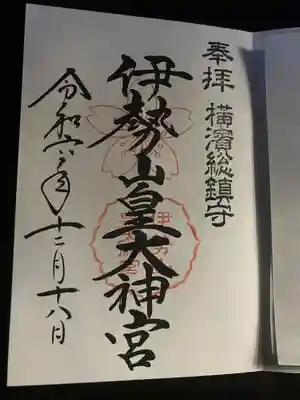 奉拝 横濱総鎮守
伊勢山皇大神宮
令和六年十二月十八日